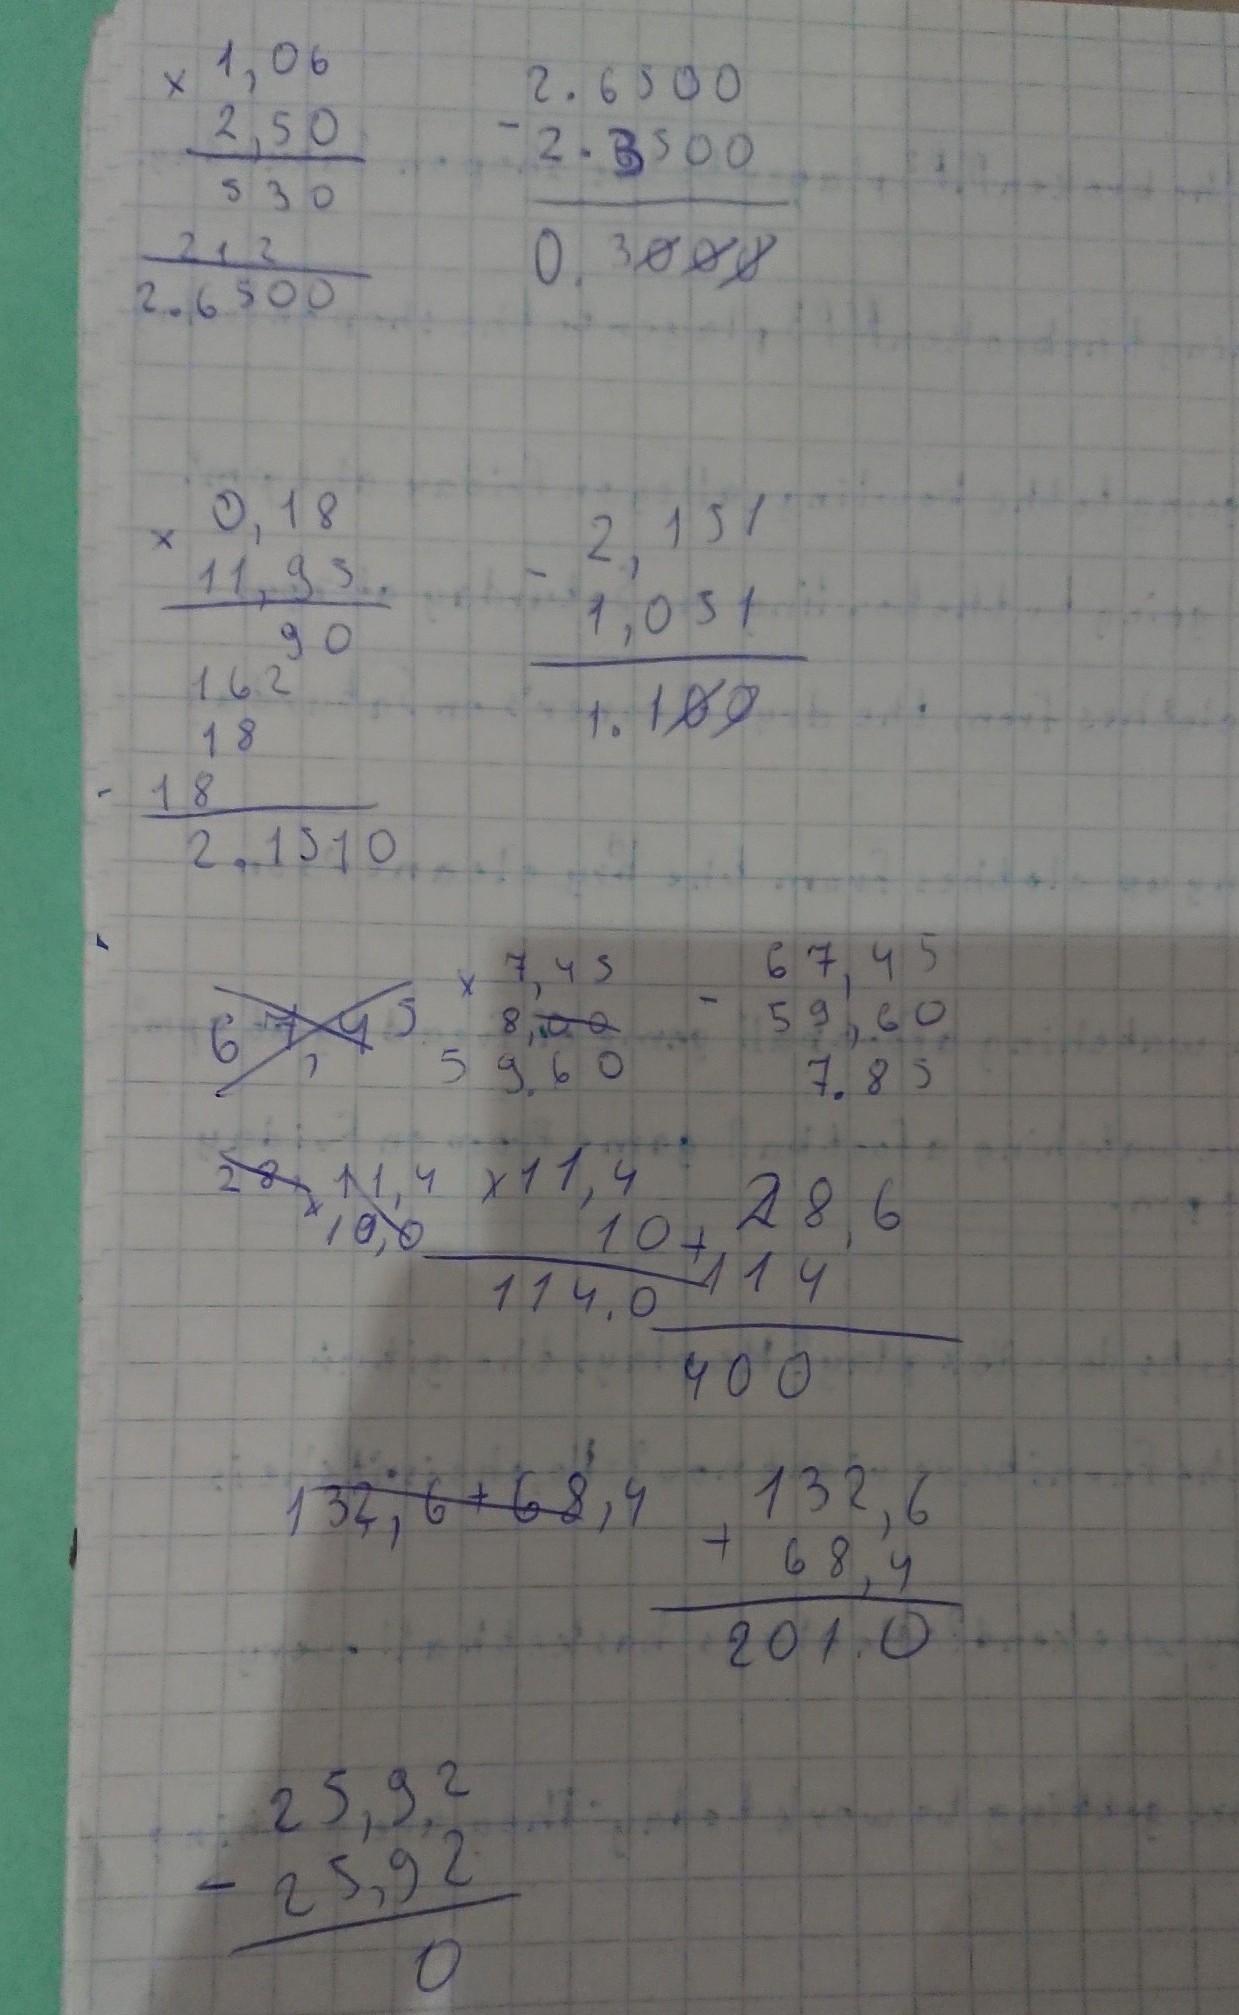 × 1,06
2,50
530
212
2.6500
2.6500
- 2.3500
0.3000
× 0,18
11,95
90
162
18
- 18
2.1510
2,151
- 1,051
1.100
67,45
× 7,45
8,00
59.60
- 67,45
59,60
7.85
28 11,4
× 10,0
× 11,4
10
114.0
28,6
+ 114
400
132,6 + 68,4
132,6
+ 68,4
201.0
25,92
- 25,92
0